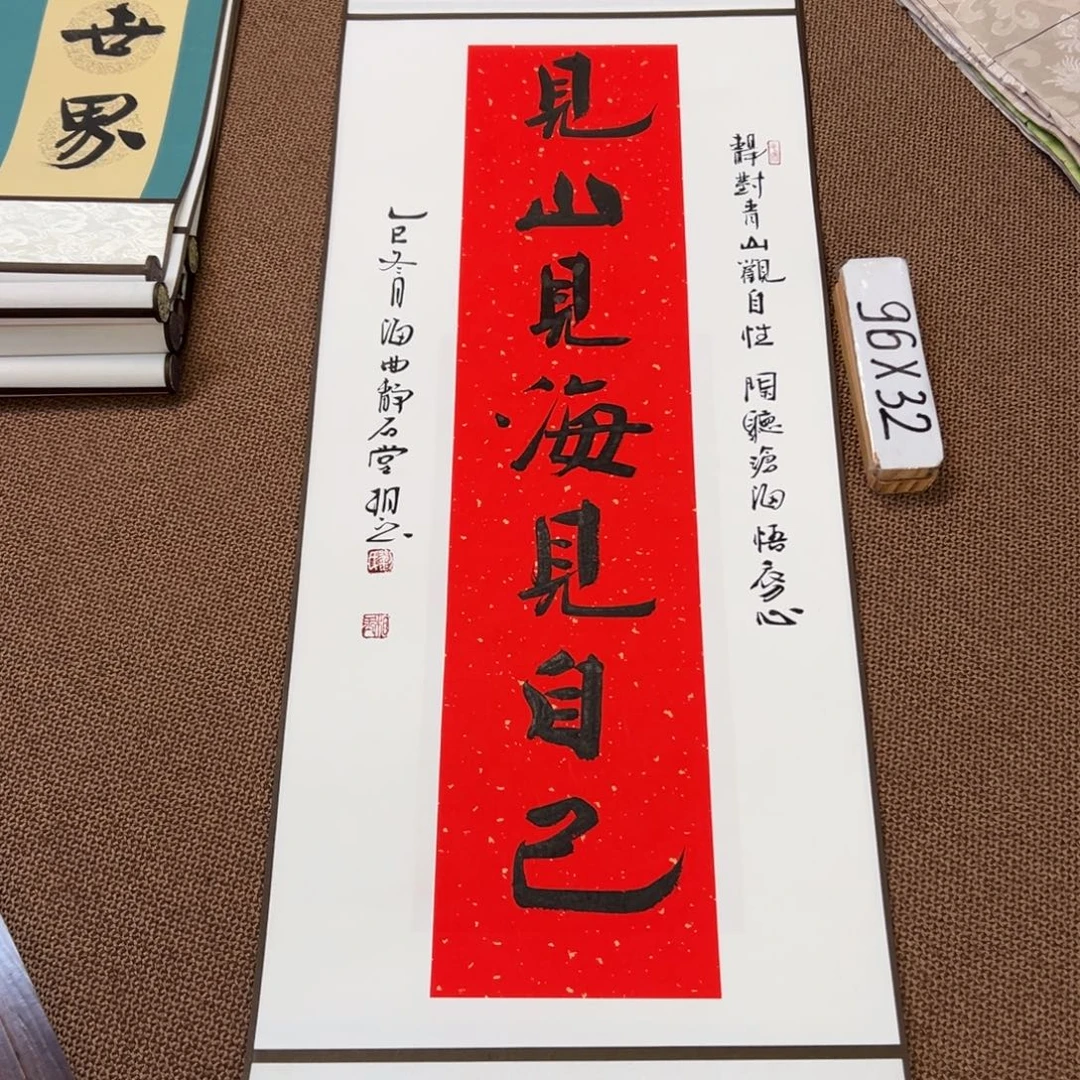 世界
見山見海見自己
靜對青山觀自性 閑聽滄海悟齊心
乙巳冬月海曲靜石堂
96X32